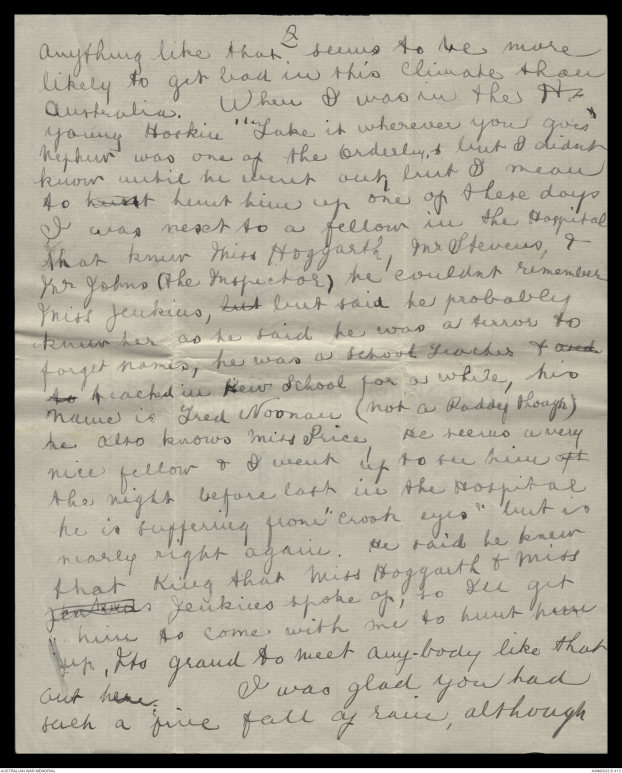 2
anything like that seems to be more
likely to get bad in this climate than
Australia. When I was in the H
young Hoskin "Take it wherever you goes"
nephew was one of the Orderlys, & but I didnt
know until he went out, but I mean
to hunt hunt him up one of these days
I was next to a fellow in the Hospital
that knew Miss Hoggarth, Mr Stevens, &
Mr Johns (the Inspector) he couldnt remember
Miss Jenkins, but but said he probably
knew her as he said he was a terror to
forget names, he was a School Teacher & and
to teached in Kew School for a while, his
name is Fred Noonan (not a Paddy though)
he also knows Miss Price. He seems a very
nice fellow & I went up to see him at
the night before last in the Hospital
he is suffering from "crook eyes" but is
nearly right again. He said he knew
that King that Miss Hoggarth & Miss
Jenkins Jenkins spoke of, so Ill get
him to come with me to hunt him
up, Its grand to meet any-body like that
out here. I was glad you had
such a fine fall of rain, although
AUSTRALIAN WAR MEMORIAL
AWM2022.6.413